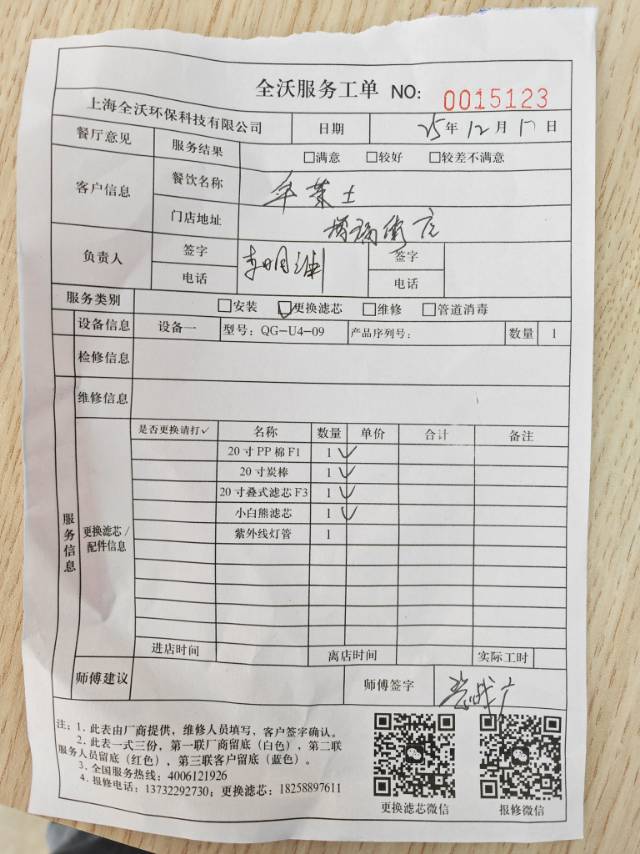 全沃服务工单 NO: 0015123
上海全沃环保科技有限公司 日期 25年12月17日
餐厅意见 服务结果 □满意 □较好 □较差不满意
客户信息 餐饮名称
门店地址
负责人 签字 签字
电话 电话
服务类别 □安装 ☑更换滤芯 □维修 □管道消毒
设备信息 设备一 型号: QG-U4-09 产品序列号: 数量 1
检修信息
维修信息
服务信息
更换滤芯/配件信息
是否更换请打✓ 名称 数量 单价 合计 备注
20寸PP棉F1 1 ✓
20寸炭棒 1 ✓
20寸叠式滤芯F3 1 ✓
小白熊滤芯 1 ✓
紫外线灯管 1
进店时间 离店时间 实际工时
师傅建议 师傅签字
注: 1. 此表由厂商提供，维修人员填写，客户签字确认。
2. 此表一式三份，第一联厂商留底（白色），第二联
服务人员留底（红色），第三联客户留底（蓝色）。
3. 全国服务热线: 4006121926
4. 报修电话: 13732292730; 更换滤芯: 18258897611
更换滤芯微信 报修微信